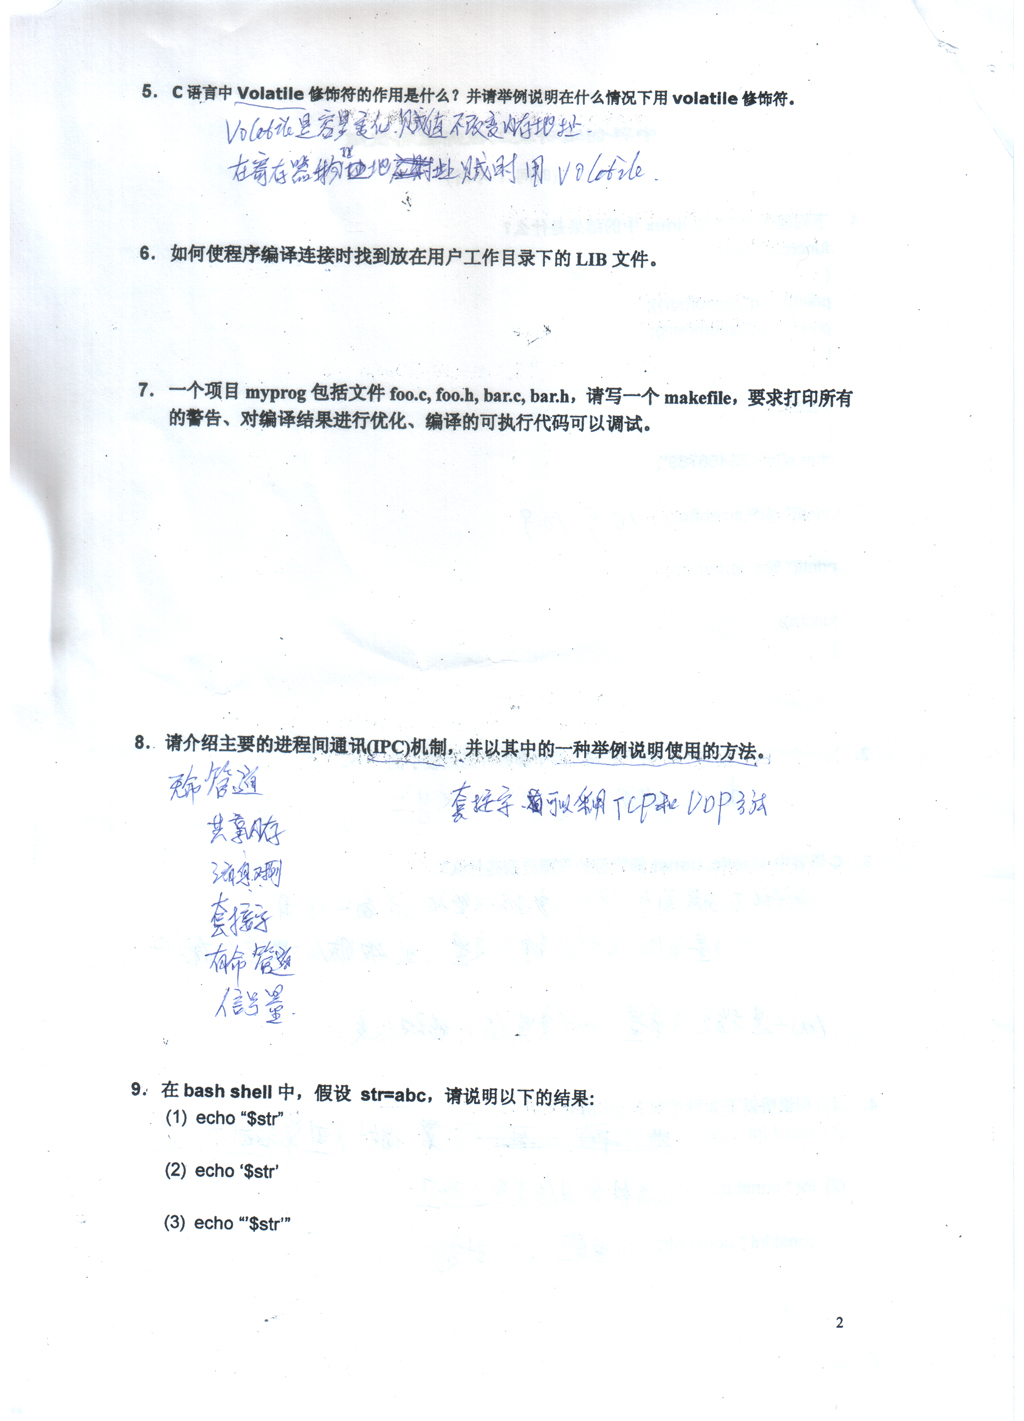 5. C 语言中 Volatile 修饰符的作用是什么？并请举例说明在什么情况下用 volatile 修饰符。
Volatile是容易变化 赋值不改变内存地址.
在寄存器物理地址赋时用 volatile.
6. 如何使程序编译连接时找到放在用户工作目录下的 LIB 文件。
7. 一个项目 myprog 包括文件 foo.c, foo.h, bar.c, bar.h，请写一个 makefile，要求打印所有
的警告、对编译结果进行优化、编译的可执行代码可以调试。
8. 请介绍主要的进程间通讯(IPC)机制，并以其中的一种举例说明使用的方法。
无命管道
套接字 可以采用 TCP和 UDP方法
共享内存
消息队列
套接字
有命管道
信号量.
9. 在 bash shell 中，假设 str=abc，请说明以下的结果:
(1) echo “$str”
(2) echo ‘$str’
(3) echo “’$str’”
2